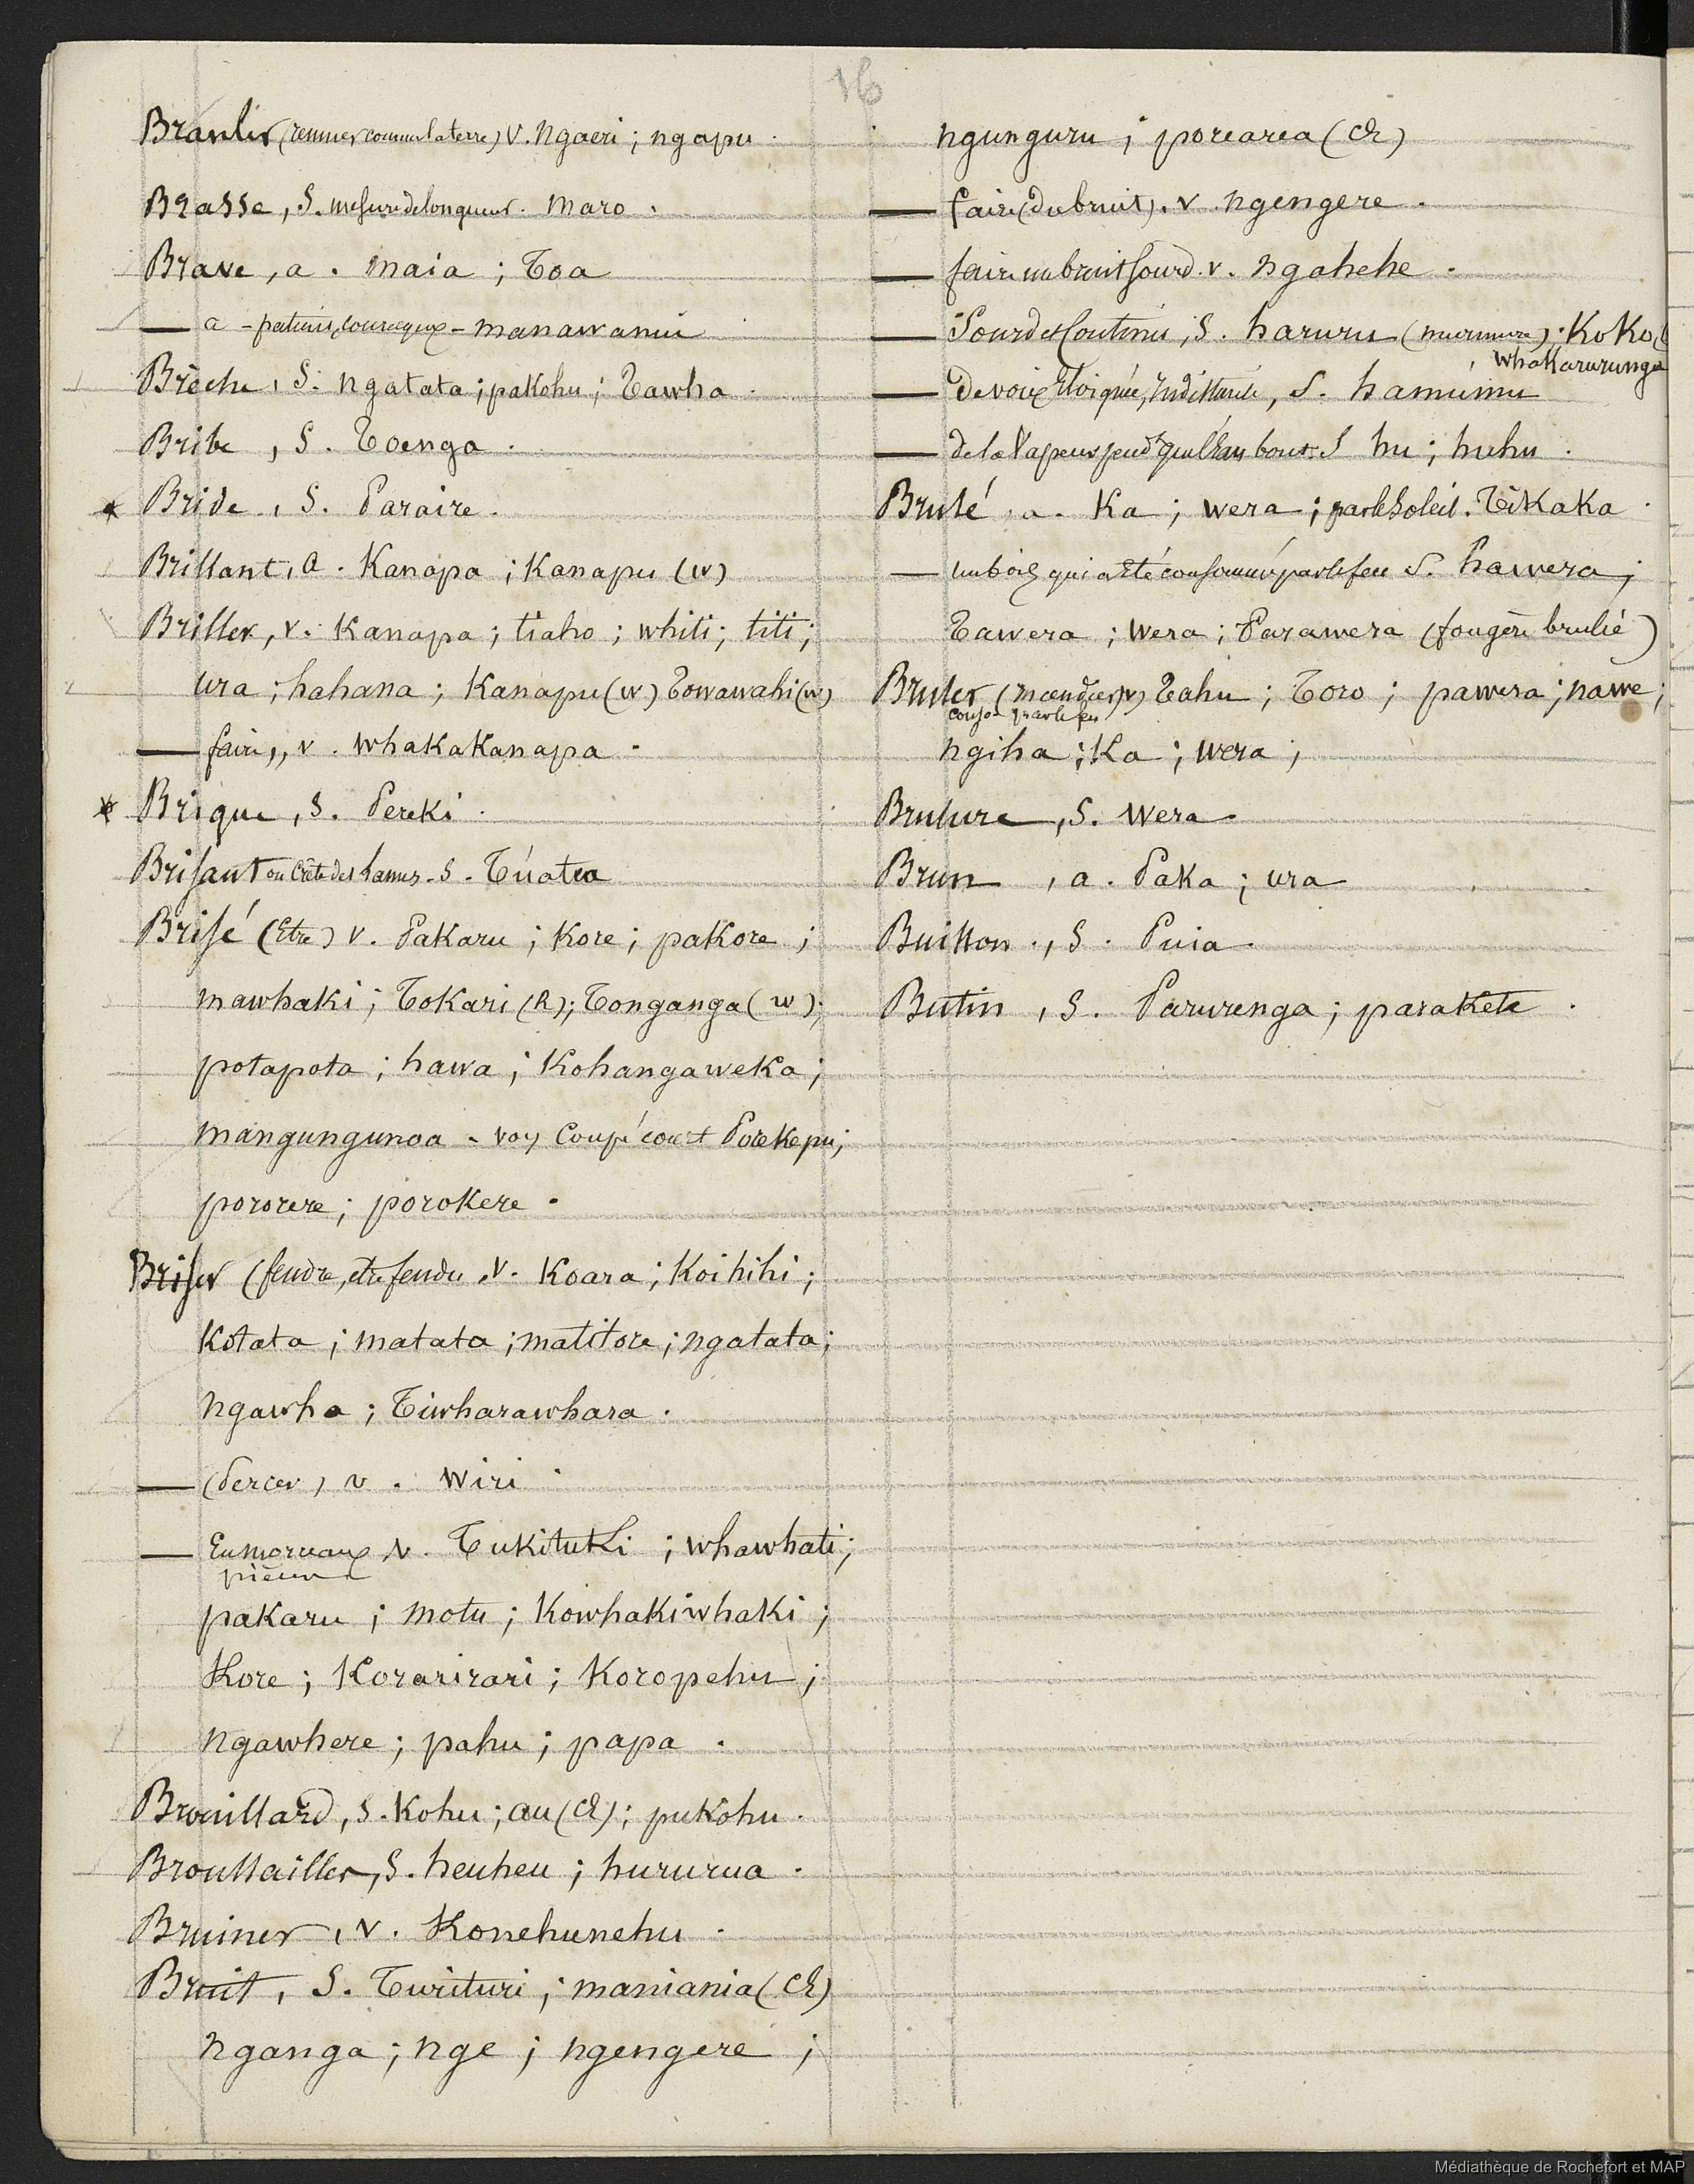 16
Branler (remuer comme la terre) v. Ngaeri ; ngapu .
Brasse , S. mesure de longueur . Maro .
Brave , a . Maia ; Toa
— a - patient, courageux - manawanui
Brèche , S. ngatata ; pakohu ; Tawha .
Bribe , S. Toenga .
* Bride , S. Paraire .
Brillant , a . Kanapa ; Kanapu (w)
Briller , v. Kanapa ; tiaho ; whiti ; titi ;
ura ; hahana ; Kanapu (w) Towawahi (w)
— faire , v . whakakanapa .
* Brique , S. Pereki .
Brisant ou Crête des lames . S . Tuatea
Brisé (Etre) v. Pakaru ; Kore ; pakore ;
mawhaki ; Tokari (R) ; Tonganga (w) ;
potapota ; hawa ; Kohangaweka ;
mangungunoa - voy Coupé court Porekepu ;
pororere ; porokere .
Briser (fendre, être fendu . v. Koara ; Koihihi ;
Kotata ; matata ; matitore ; ngatata ;
Ngawha ; Tiwharawhara .
— (Percer) v . Wiri .
— En morceaux v. Tukituki ; whawhati ;
pièces
pakaru ; motu ; Kowhakiwhaki ;
Kore ; Korarirari ; Koropehu ;
ngawhere ; pahu ; papa .
Brouillard , S. Kohu ; au (ch) ; pukohu .
Broussailles , S. heuheu ; hururua .
Bruiner , v. Konehunehu .
Bruit , S. Turituri ; maniania (ch)
nganga ; nge ; ngengere ;
ngunguru ; porearea (ch)
— faire (du bruit) . v . ngengere .
— faire un bruit sourd . v. ngahehe .
— Sourd et soutenu , S. haruru (murmure) ; KoKo,
whakarurunga
— De voix éloignée, indistincte , S. hamumu
— de la Vapeur pendt que l'eau bout . S hu ; huhu .
Brulé , a . Ka ; wera ; par le Soleil . Tikaka .
— un bois qui a été consommé par le feu S. hawera ;
Tawera ; wera ; Parawera (fougère brulée)
Bruler (incendier) v) Tahu ; Toro ; pawera ; nawe ;
conso- par le feu
ngiha ; Ka ; wera ;
Brulure , S. Wera .
Brun , a . Paka ; ura
Buisson . , S . Puia .
Butin , S. Parurenga ; parakete .
Médiathèque de Rochefort et MAP